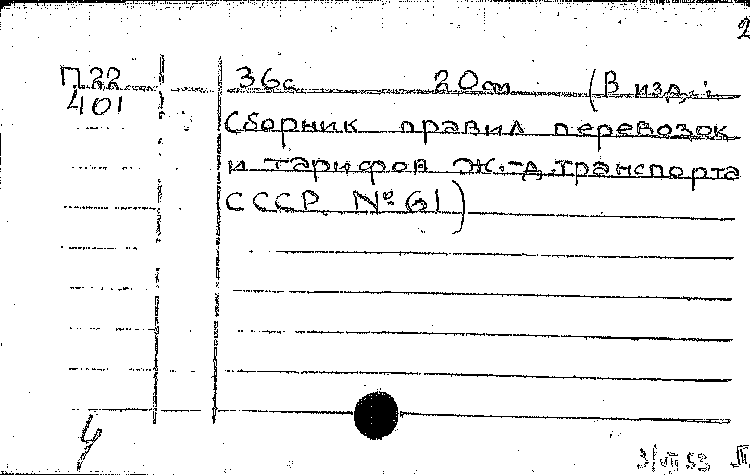 2
П22 36с 20см (В изд.:
401
Сборник правил перевозок
и тарифов ж.-д.транспорта
СССР № 61)
3/VII 53